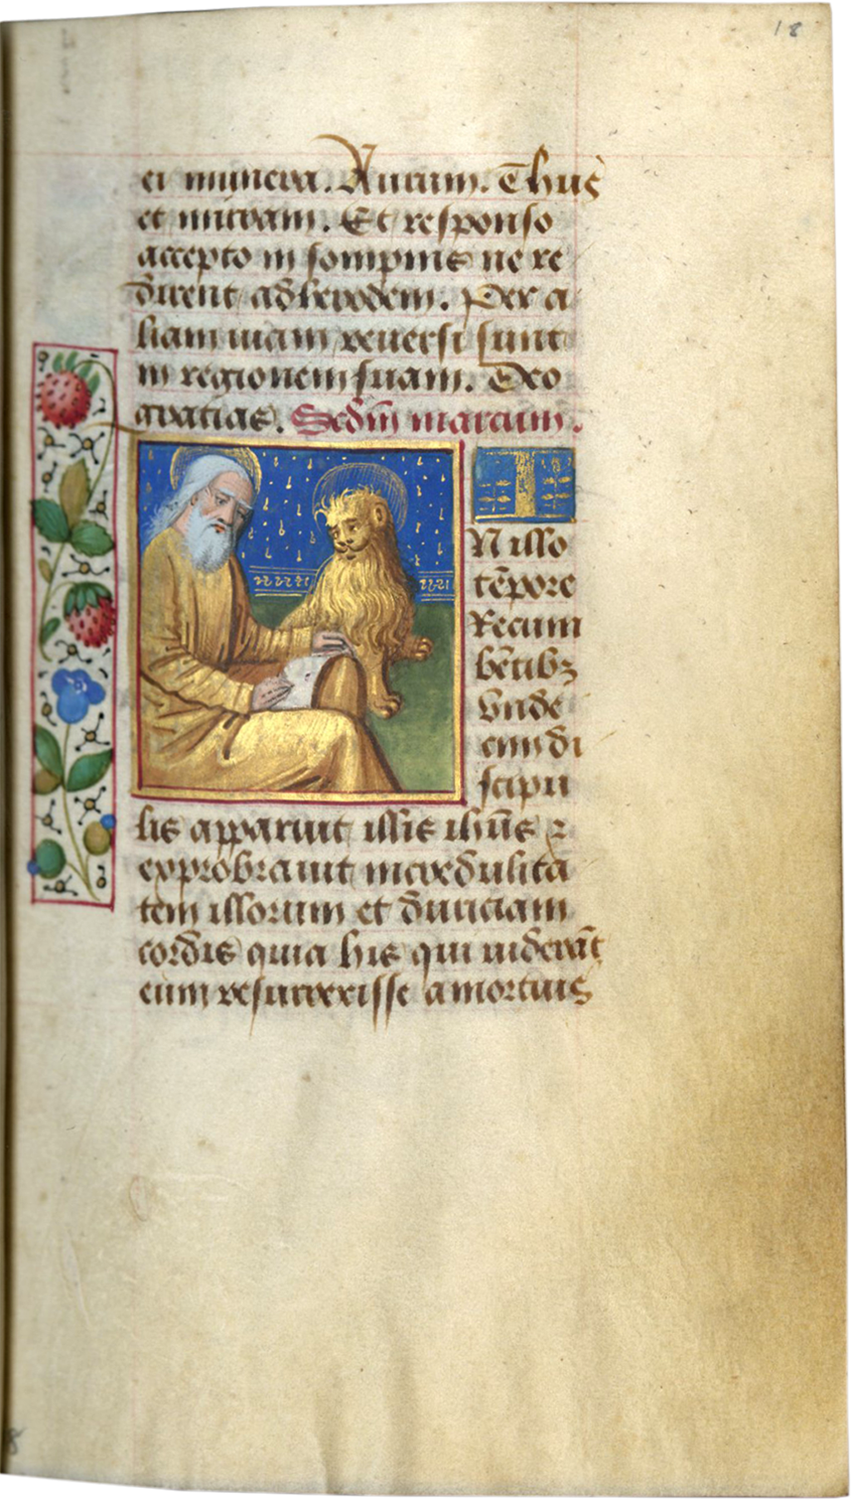 18
ei munera. Aurum. Thus
et mirram. Et responso
accepto in sompnis ne re
dirent ad herodem. Per a
liam uiam reuersi sunt
in regionem suam. Deo
gratias. Sedm̄ marcum.
I
N illo
tēpore
Recum
bētibꝫ
vnde
cim di
scipu
lis apparuit illis ihūs ⁊
exprobrauit incredulita
tem illorum et duriciam
cordis quia his qui uiderāt
eum resurrexisse a mortuis